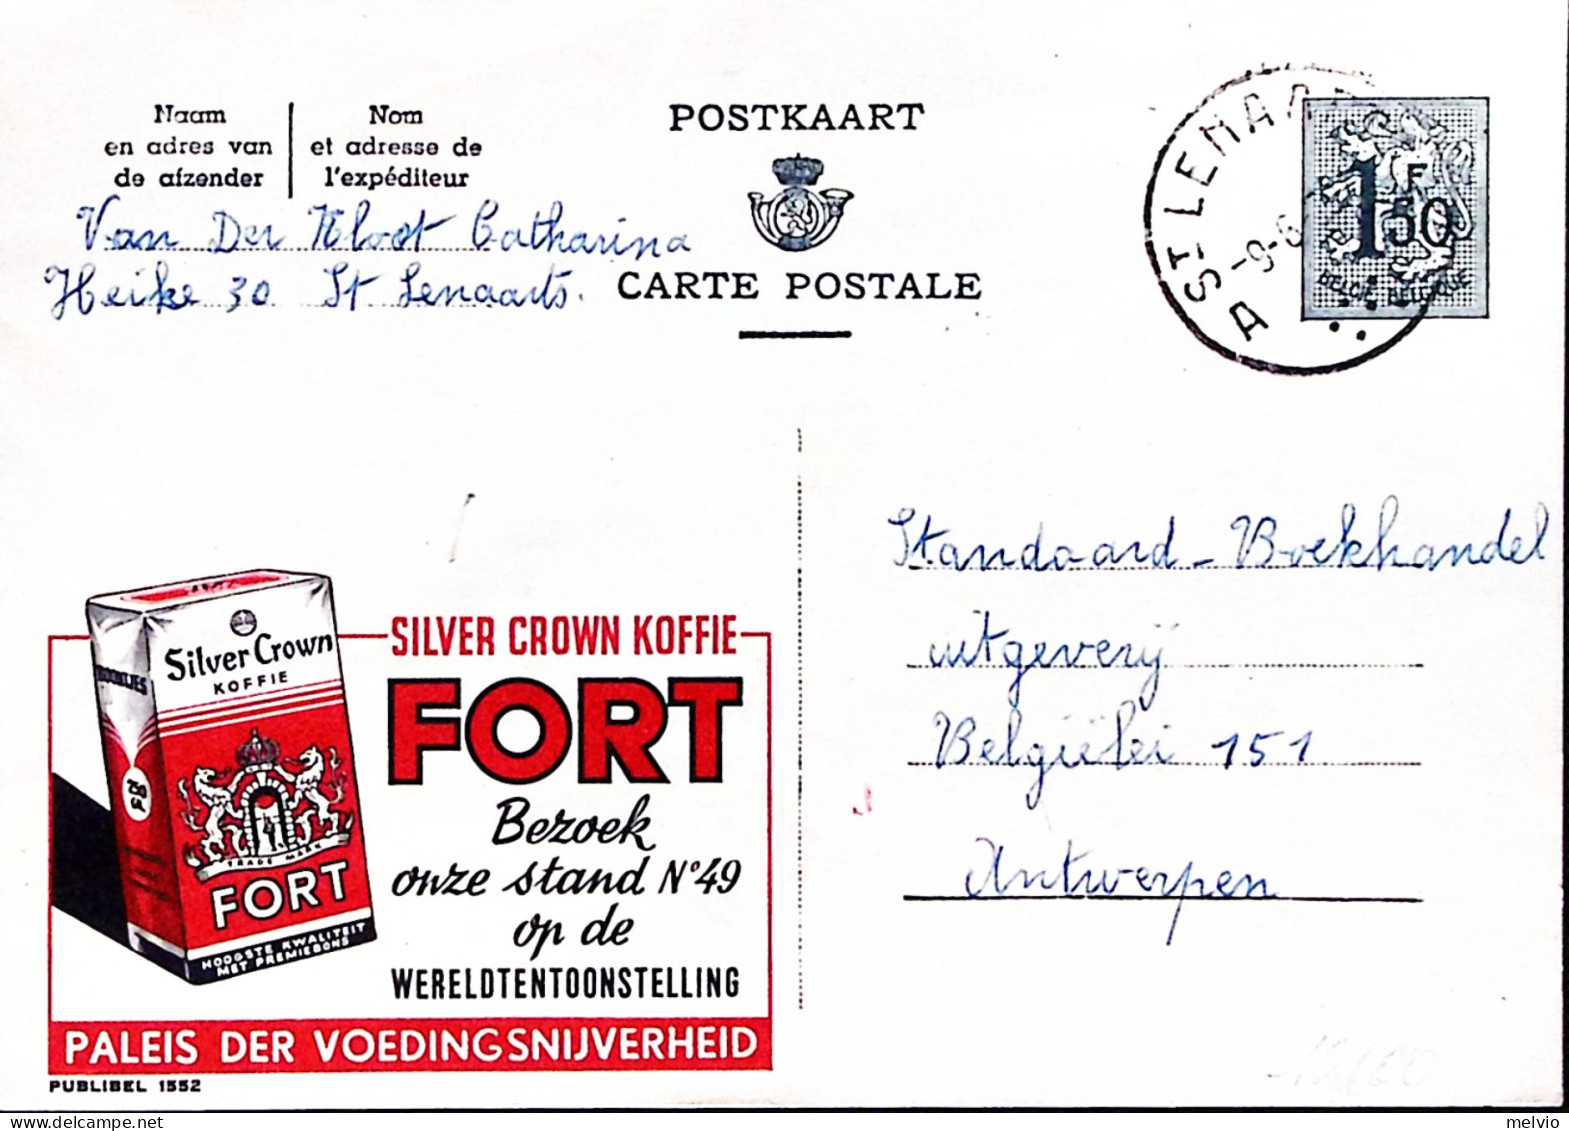 Naam
en adres van
de afzender
Nom
et adresse de
l'expéditeur
Van Der Kloot Catharina
Heike 30 St Lenaarts.
POSTKAART
CARTE POSTALE
ST LENAA
-9-6
A
1F50
BELGIE BELGIQUE
Standaard-Boekhandel
uitgeverij
Belgiëlei 151
Antwerpen
Silver Crown
KOFFIE
250 gr.
TRADE MARK
FORT
HOOGSTE KWALITEIT
MET PREMIEBONS
SILVER CROWN KOFFIE
FORT
Bezoek
onze stand No 49
op de
WERELDTENTOONSTELLING
PALEIS DER VOEDINGSNIJVERHEID
PUBLIBEL 1552
melvio